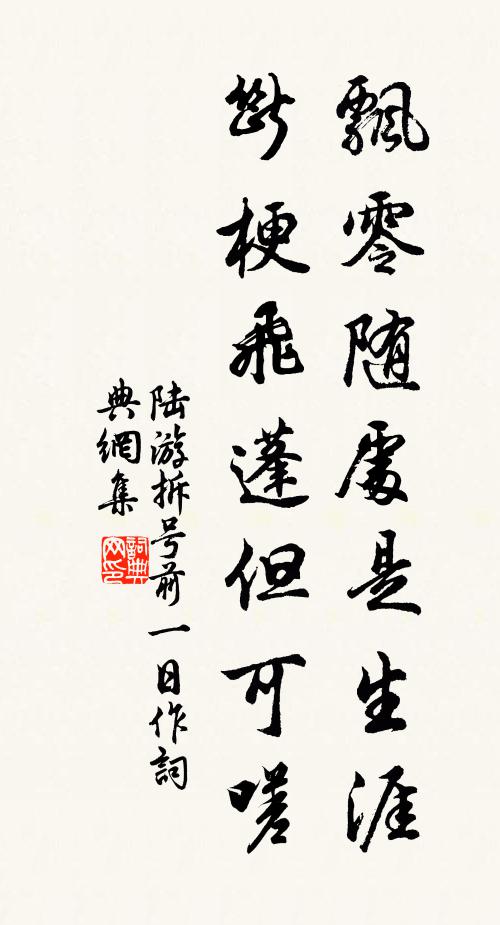 飄零随處是生涯
斷梗飛蓬但可嗟
陆游拆号前一日作詞
典網集
詞典
网印